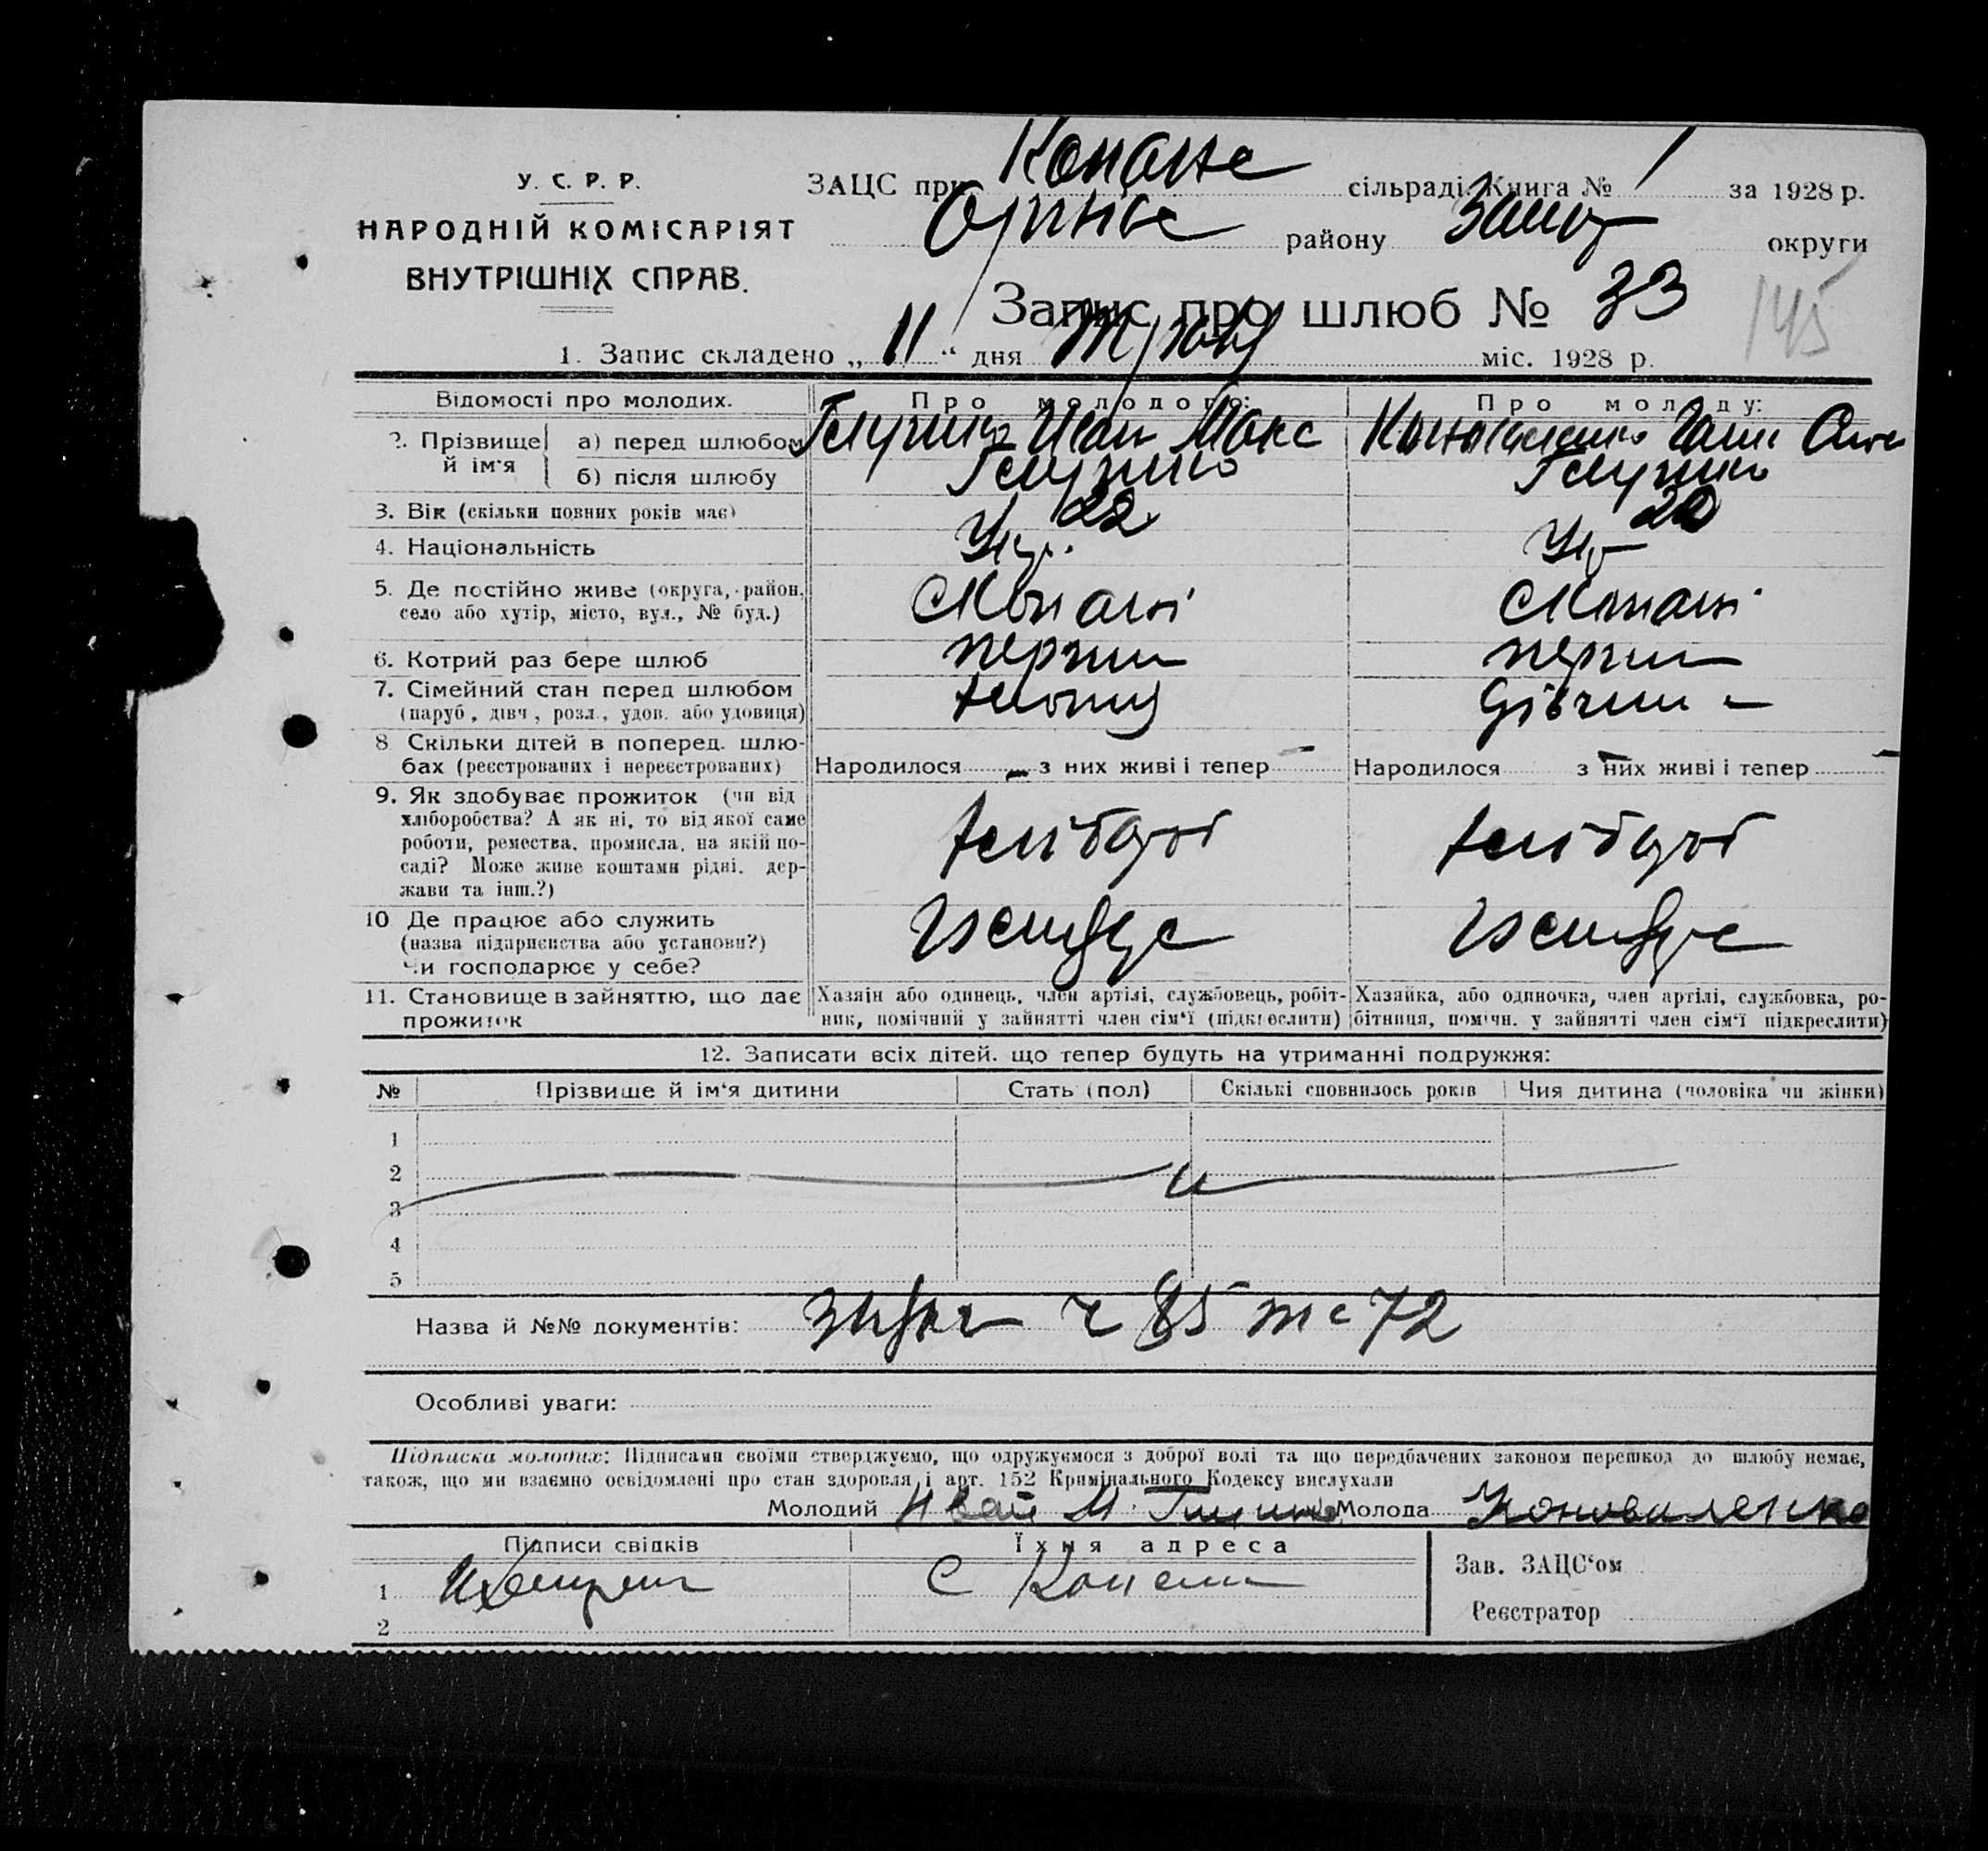 У. С. Р. Р.
НАРОДНІЙ КОМІСАРІЯТ
ВНУТРІШНІХ СПРАВ.
ЗАЦС при Копане сільраді. Книга № 1 за 1928 р.
району округи
Запис про шлюб № 33
145
1. Запис складено „ 11 “ дня міс. 1928 р.
Відомості про молодих. Про молодого: Про молоду:
2. Прізвище й ім'я
а) перед шлюбом
б) після шлюбу
3. Вік (скільки повних років має) 22 20
4. Національність Укр.
5. Де постійно живе (округа, район,
село або хутір, місто, вул., № буд.)
с Копані с Копані
6. Котрий раз бере шлюб перший перший
7. Сімейний стан перед шлюбом
(паруб., дівч., розл., удов. або удовиця)
дівчина
8. Скільки дітей в поперед. шлю-
бах (реєстрованих і нереєстрованих)
Народилося – з них живі і тепер – Народилося з них живі і тепер –
9. Як здобуває прожиток (чи від
хліборобства? А як ні, то від якої саме
роботи, ремества, промисла, на якій по-
саді? Може живе коштами рідні, дер-
жави та інш.?)
хлібороб хлібороб
10 Де працює або служить
(назва підприємства або установи?)
Чи господарює у себе?
11. Становище в зайняттю, що дає
прожиток
Хазяїн або одинець, член артілі, службовець, робіт-
ник, помічний у зайнятті член сім'ї (підкреслити)
Хазяйка, або одиночка, член артілі, службовка, ро-
бітниця, помічн. у зайнятті член сім'ї підкреслити)
12. Записати всіх дітей, що тепер будуть на утриманні подружжя:
№ Прізвище й ім'я дитини Стать (пол) Скількі сповнилось років Чия дитина (чоловіка чи жінки)
1
2
3
4
5
Назва й №№ документів: 85 72
Особливі уваги:
Підписка молодих: Підписами своїми стверджуємо, що одружуємося з доброї волі та що передбачених законом перешкод до шлюбу немає,
також, що ми взаємно освідомлені про стан здоровля і арт. 152 Кримінального Кодексу вислухали
Молодий Иван М. Молода Коноваленко
Підписи свідків Їхня адреса
1 С Копани
2
Зав. ЗАЦС'ом
Реєстратор